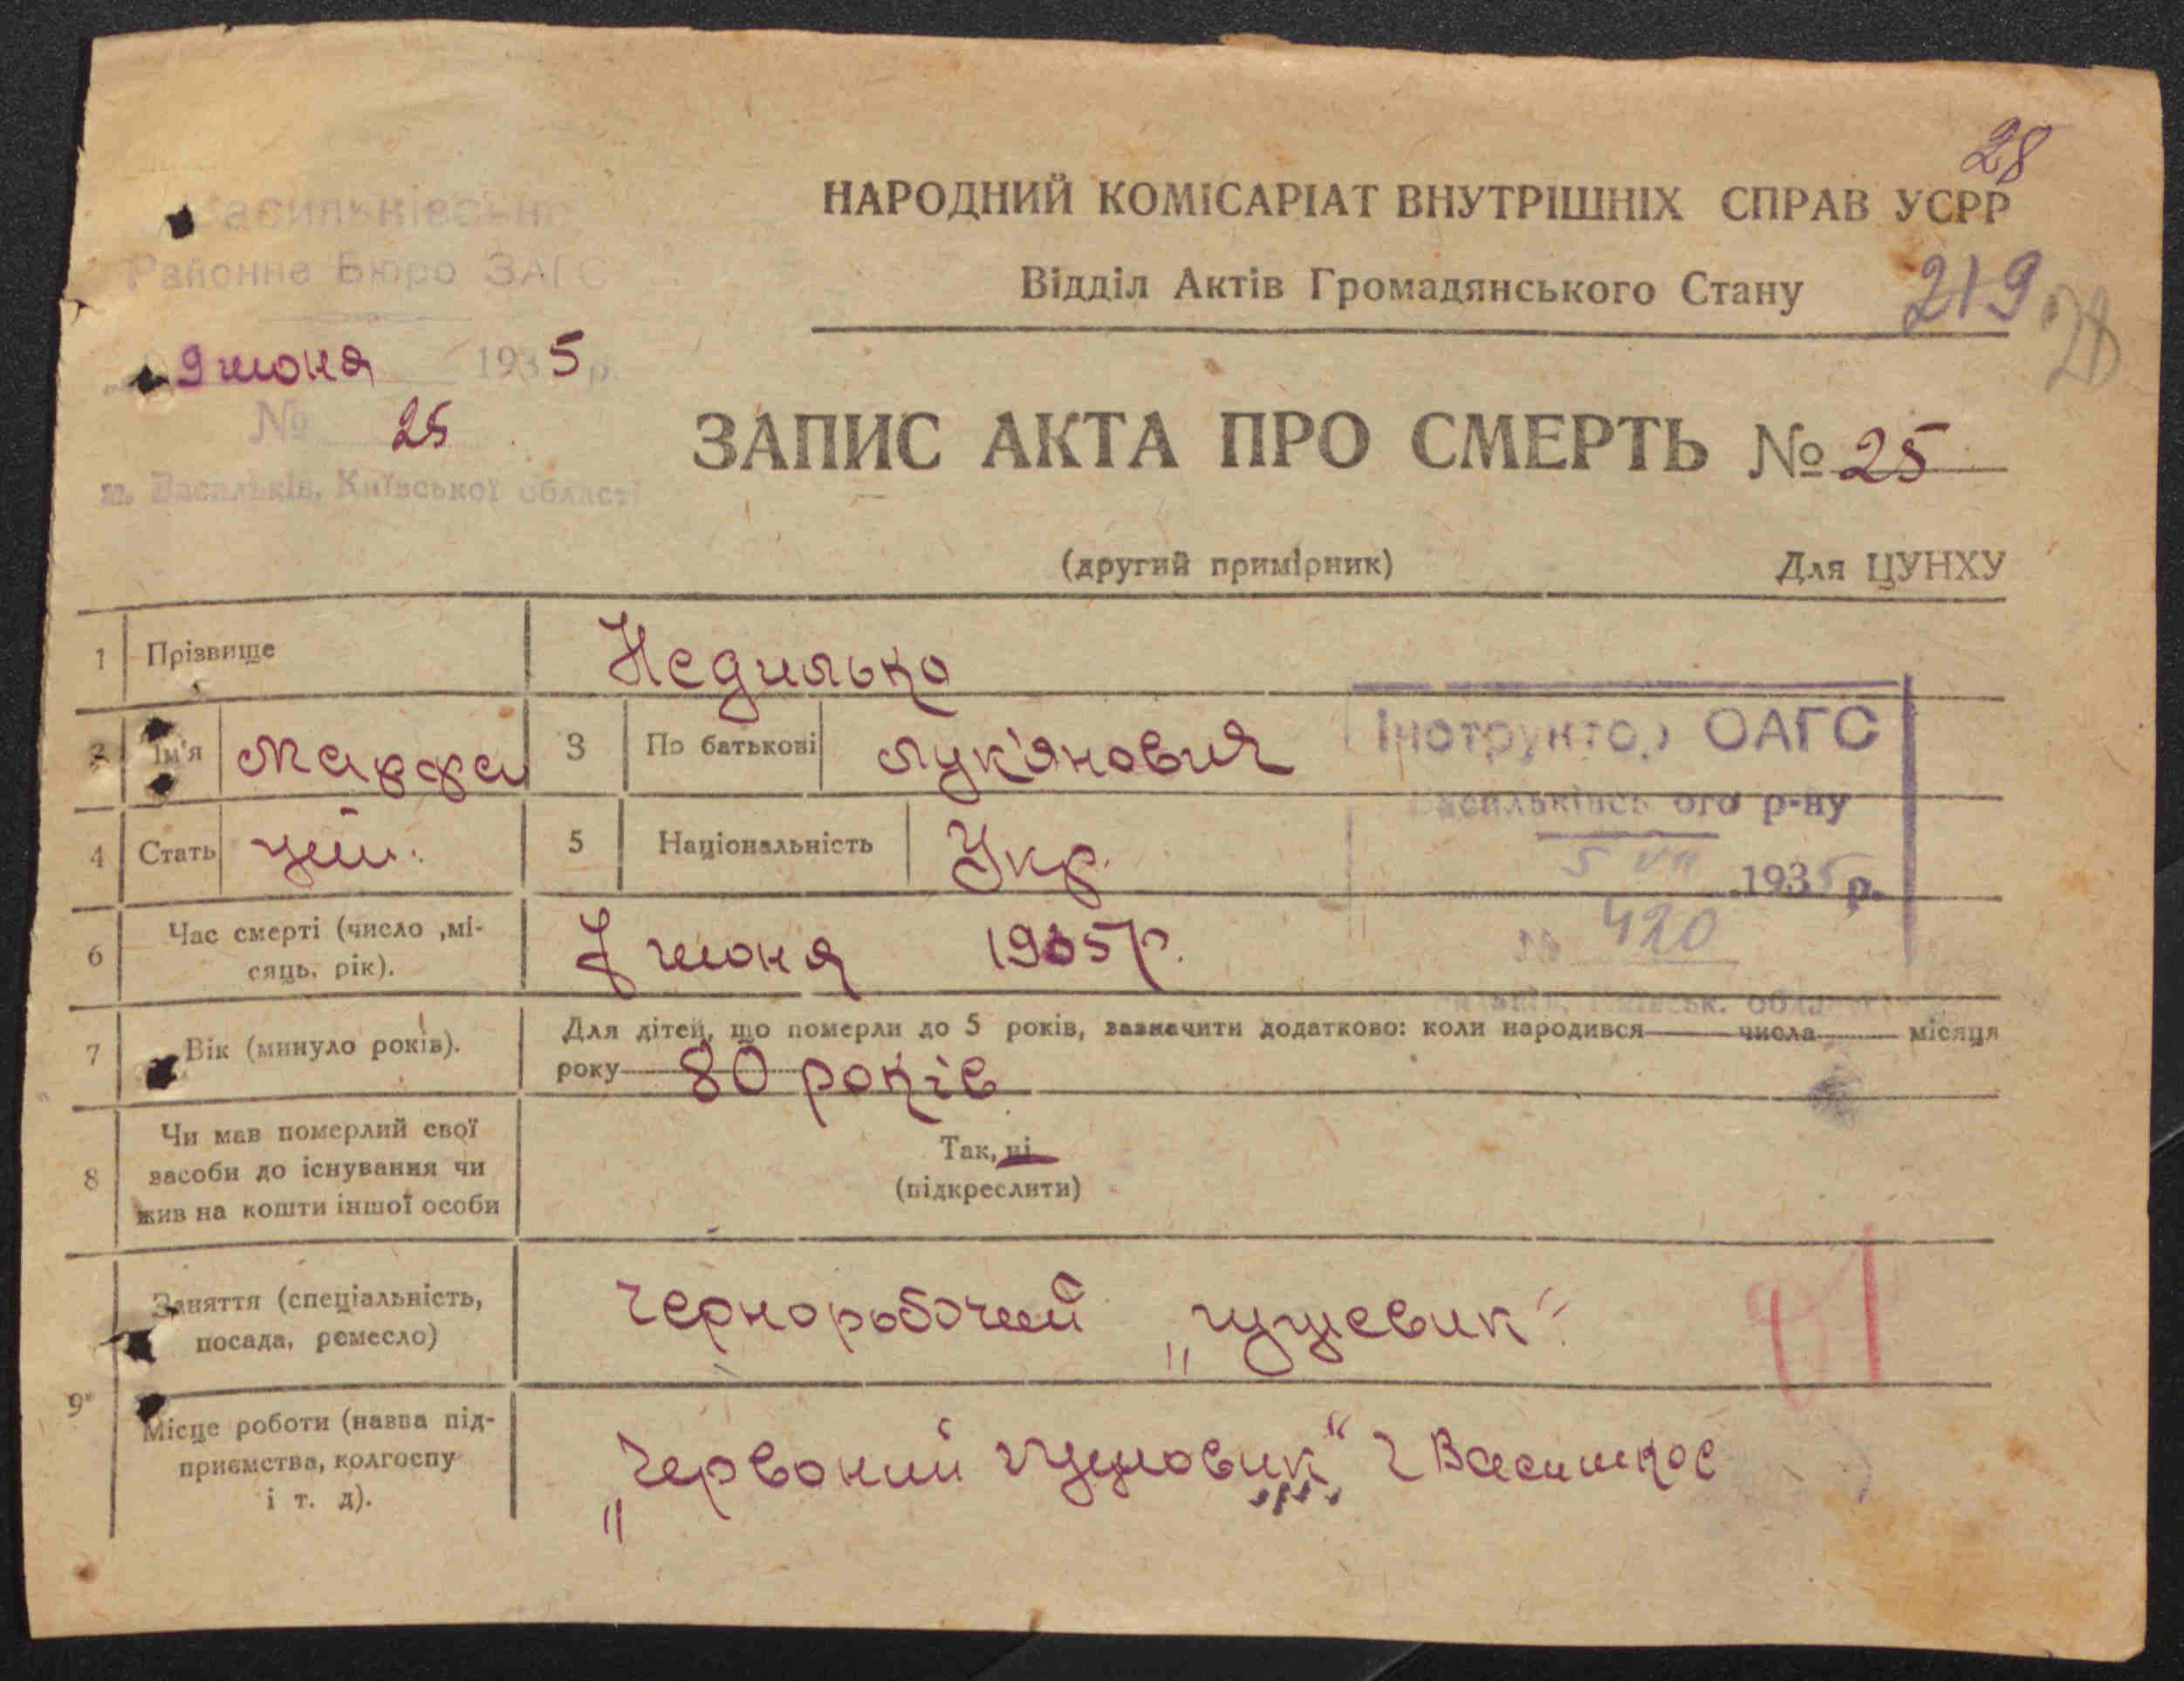 28
НАРОДНИЙ КОМІСАРІАТ ВНУТРІШНІХ СПРАВ УСРР
Відділ Актів Громадянського Стану
219
28
Васильківське
Районне Бюро ЗАГС
9 июня 1935 р.
№ 25
м. Васильків, Київської області
ЗАПИС АКТА ПРО СМЕРТЬ № 25
(другий примірник) Для ЦУНХУ
1 Прізвище Недилько
2 Ім'я Марфа 3 По батькові Лук'яновия
4 Стать 5 Національність Укр.
Інструктор ОАГС
Васильківського р-ну
5 VII 1935 р.
№ 420
6 Час смерті (число ,мі-
сяць, рік). 7 июня 1935 р.
7 Вік (минуло років). Для дітей, що померли до 5 років, зазначити додатково: коли народився числа місяця
року 80 років
8 Чи мав померлий свої
засоби до існування чи
жив на кошти іншої особи
Так, ні
(підкреслити)
9 Заняття (спеціальність,
посада, ремесло) Чернорабочий
Місце роботи (назва під-
приємства, колгоспу
і т. д). „Червоний